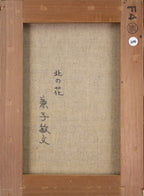 北の花
兼子敏文
F4